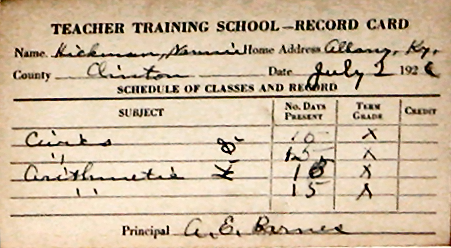 TEACHER TRAINING SCHOOL—RECORD CARD
Name Hickman, Nannie Home Address Albany, Ky.
County Clinton Date July 2 192
SCHEDULE OF CLASSES AND RECORD
SUBJECT No. DAYS PRESENT TERM GRADE CREDIT
Civics 15 X
" 15 X
Arithmetic 15 X
" 15 X
Principal A. E. Barnes